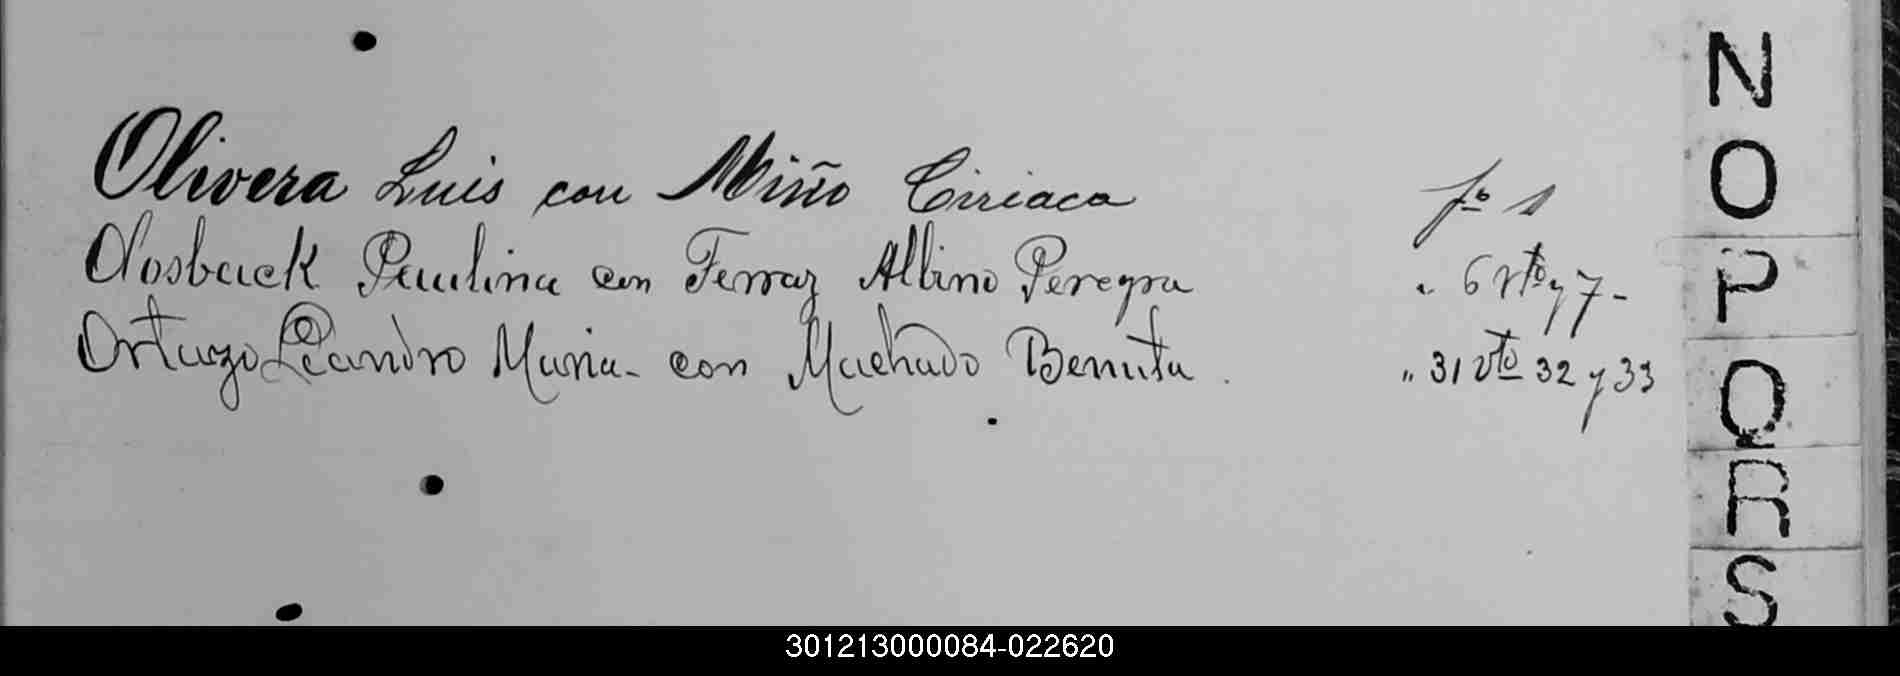 Olivera Luis con Miño Ciriaca fº 1
Olosback Paulina con Ferraz Albino Peregra " 6 vto y 7 -
Ortuzo Leandro Maria - con Machado Benita . " 31 vto 32 y 33
N
O
P
Q
R
S
301213000084-022620